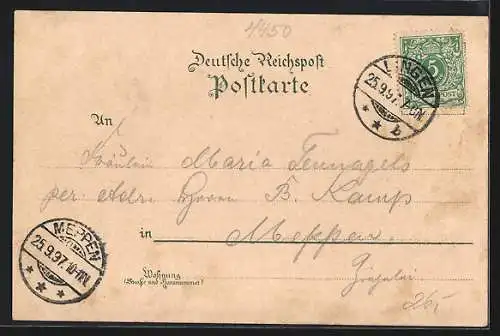 4450
Deutsche Reichspost
Postkarte
5
LINGEN
25.9.97.
b
An
Fräulein Maria Tennagels
per Adr. Herrn B. Kamp
in Meppen
MEPPEN
25.9.97.10-11N.
Wohnung
(Straße und Hausnummer)